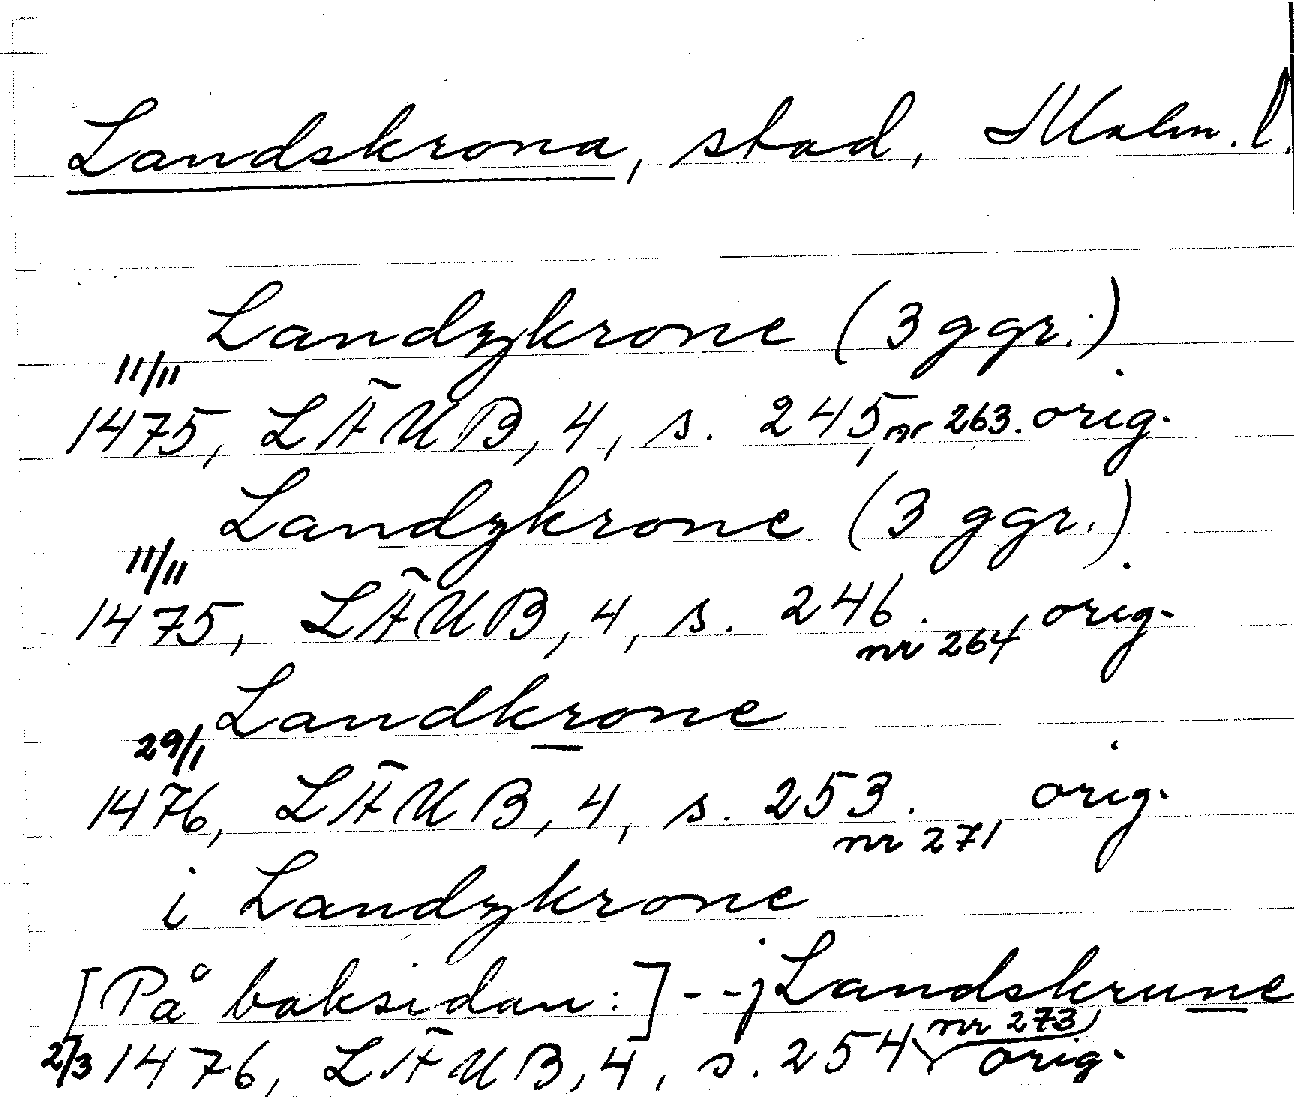 Landskrona, stad, Malm. l.
Landzkrone (3 ggr.)
11/11 1475, LÄUB, 4, s. 245, nr 263. orig.
Landzkrone (3 ggr.)
11/11 1475, LÄUB, 4, s. 246. nr 264, orig.
Landkrone
29/1 1476, LÄUB, 4, s. 253. nr 271, orig.
i Landzkrone
[På baksidan:] - - j Landskrune
2/3 1476, LÄUB, 4, s. 254, nr 273, orig.